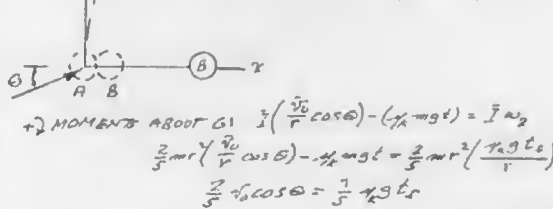 y
θ A B B x
+↷ MOMENTS ABOUT G: Ī(v̄₀/r cosθ) - (μₖmgt) = Ī ω₂
2/5 mr²(v̄₀/r cosθ) - μₖmgt = 2/5 mr²(μₖg tₛ/r)
2/5 v̄₀cosθ = 7/5 μₖg tₛ